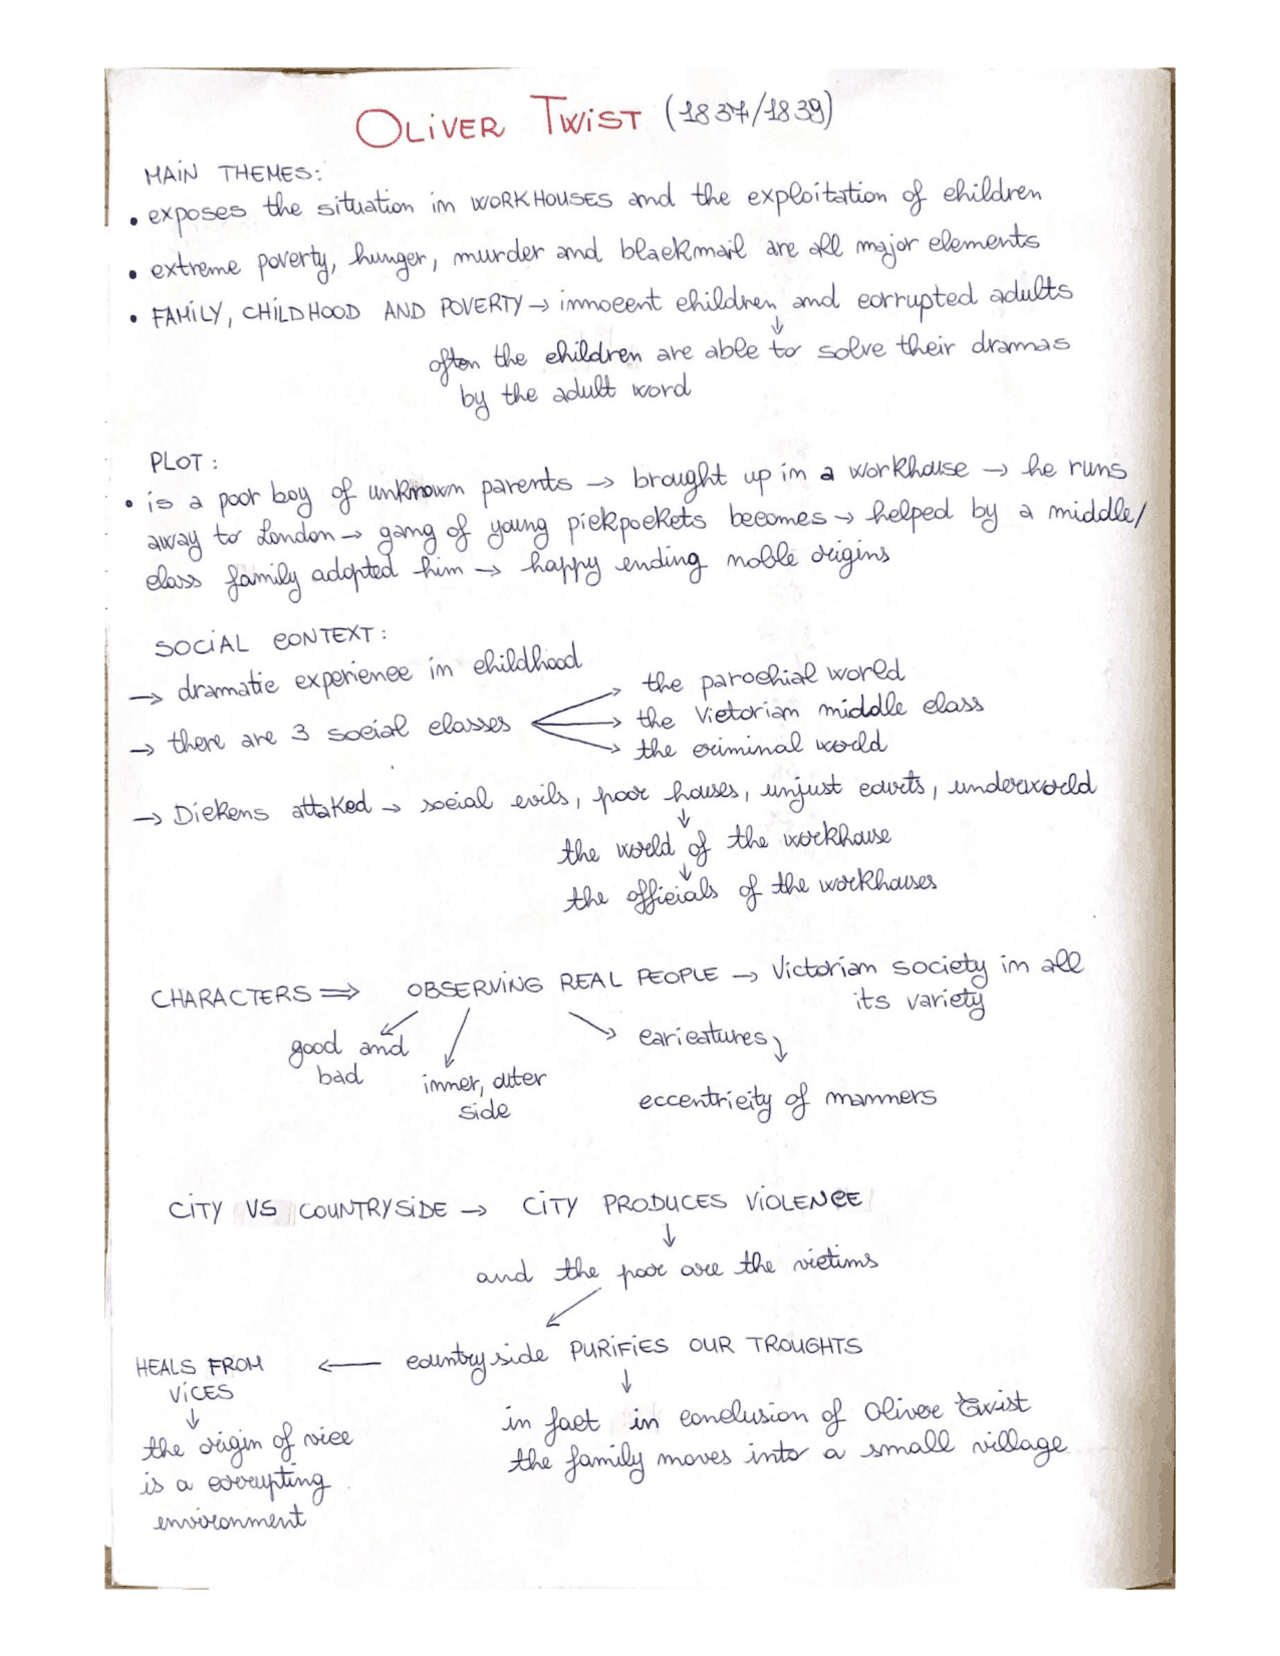 OLiVER TWiST (1837/1839)
MAiN THEMES:
• exposes the situation in WORKHOUSES and the exploitation of children
• extreme poverty, hunger, murder and blackmail are all major elements
• FAMiLY, CHiLDHOOD AND POVERTY → innocent children and corrupted adults
↓
often the children are able to solve their dramas
by the adult word
PLOT:
• is a poor boy of unknown parents → brought up in a workhouse → he runs
away to London → gang of young pickpockets becomes → helped by a middle/
class family adopted him → happy ending noble origins
SOCiAL CONTEXT:
→ dramatic experience in childhood
→ there are 3 social classes
→ the parochial world
→ the Victorian middle class
→ the criminal world
→ Dickens attaked → social evils, poor houses, unjust courts, underworld
↓
the world of the workhouse
↓
the officials of the workhouses
CHARACTERS ⇒ OBSERViNG REAL PEOPLE → Victorian society in all
its variety
good and
bad
inner, outer
side
caricatures
↓
eccentricity of manners
CiTY VS COUNTRYSiDE → CiTY PRODUCES ViOLENCE
↓
and the poor are the victims
countryside PURiFiES OUR TROUGHTS
←
HEALS FROM
ViCES
↓
the origin of vice
is a corrupting
environment
↓
in fact in conclusion of Oliver Twist
the family moves into a small village